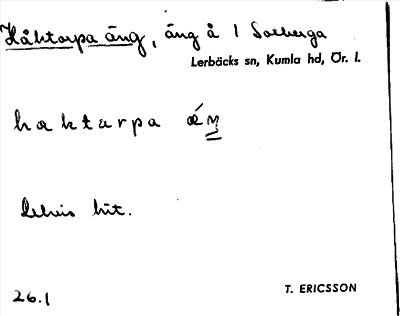 Håktorpa äng, äng å 1 Solberga
Lerbäcks sn, Kumla hd, Ör. l.
haktarpa
hit.
26.1
T. ERICSSON